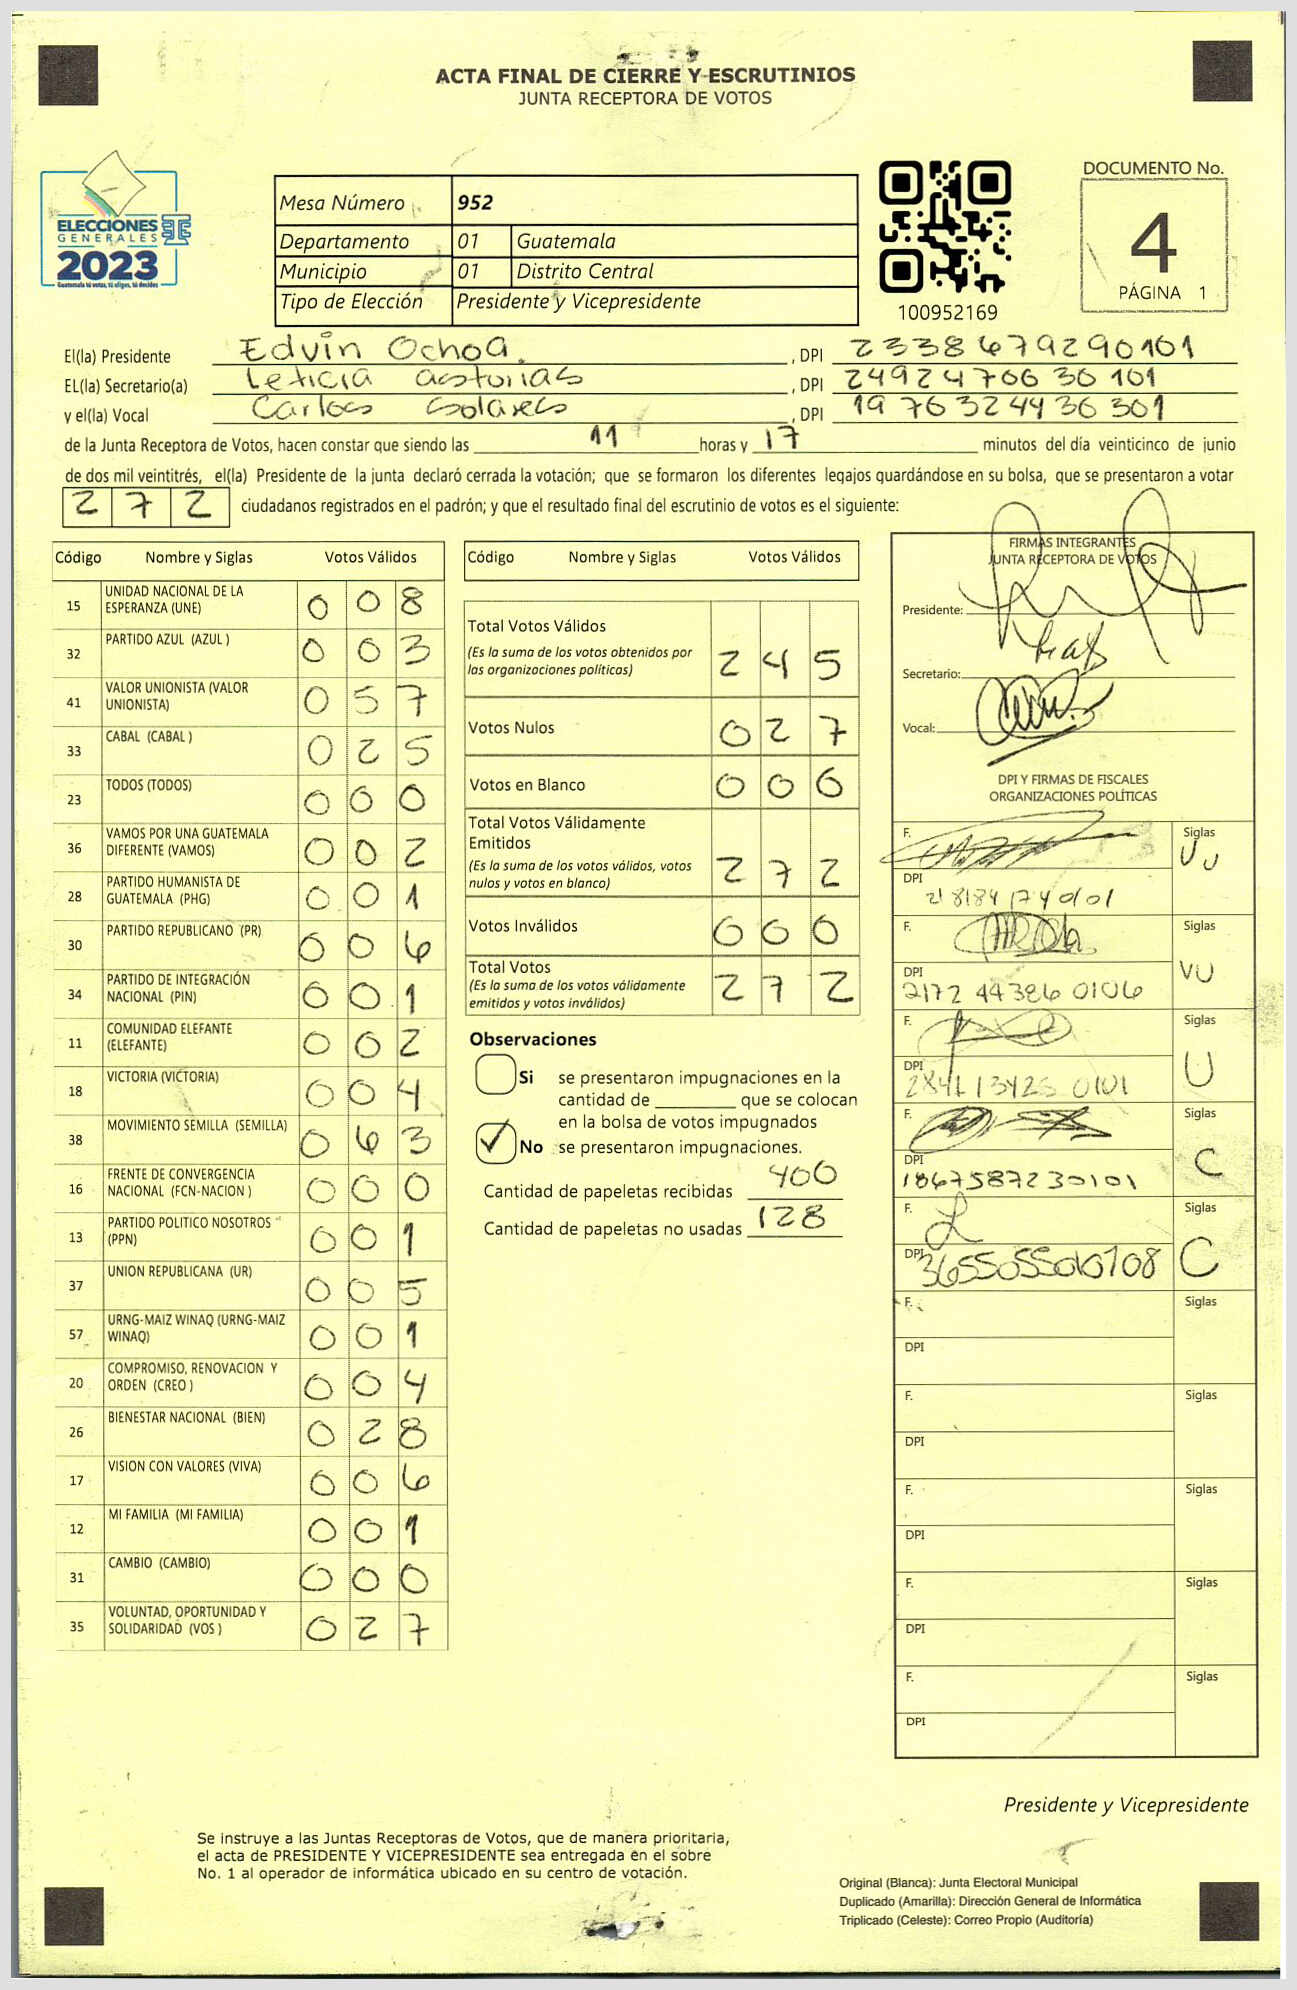 ACTA FINAL DE CIERRE Y ESCRUTINIOS
JUNTA RECEPTORA DE VOTOS
ELECCIONES
GENERALES
2023
Guatemala tú votas, tú eliges, tú decides
Mesa Número 952
Departamento 01 Guatemala
Municipio 01 Distrito Central
Tipo de Elección Presidente y Vicepresidente
100952169
DOCUMENTO No.
4
PÁGINA 1
El(la) Presidente Edvin Ochoa. , DPI 2338679290101
EL(la) Secretario(a) Leticia asturias , DPI 2492470630101
y el(la) Vocal Carlos Solares , DPI 1976324436301
de la Junta Receptora de Votos, hacen constar que siendo las 11 horas y 17 minutos del día veinticinco de junio
de dos mil veintitrés, el(la) Presidente de la junta declaró cerrada la votación; que se formaron los diferentes legajos guardándose en su bolsa, que se presentaron a votar
272 ciudadanos registrados en el padrón; y que el resultado final del escrutinio de votos es el siguiente:
Código Nombre y Siglas Votos Válidos
15 UNIDAD NACIONAL DE LA ESPERANZA (UNE) 008
32 PARTIDO AZUL (AZUL ) 003
41 VALOR UNIONISTA (VALOR UNIONISTA) 057
33 CABAL (CABAL ) 025
23 TODOS (TODOS) 000
36 VAMOS POR UNA GUATEMALA DIFERENTE (VAMOS) 002
28 PARTIDO HUMANISTA DE GUATEMALA (PHG) 001
30 PARTIDO REPUBLICANO (PR) 006
34 PARTIDO DE INTEGRACIÓN NACIONAL (PIN) 001
11 COMUNIDAD ELEFANTE (ELEFANTE) 002
18 VICTORIA (VICTORIA) 004
38 MOVIMIENTO SEMILLA (SEMILLA) 063
16 FRENTE DE CONVERGENCIA NACIONAL (FCN-NACION ) 000
13 PARTIDO POLITICO NOSOTROS (PPN) 001
37 UNION REPUBLICANA (UR) 005
57 URNG-MAIZ WINAQ (URNG-MAIZ WINAQ) 001
20 COMPROMISO, RENOVACION Y ORDEN (CREO ) 004
26 BIENESTAR NACIONAL (BIEN) 028
17 VISION CON VALORES (VIVA) 006
12 MI FAMILIA (MI FAMILIA) 001
31 CAMBIO (CAMBIO) 000
35 VOLUNTAD, OPORTUNIDAD Y SOLIDARIDAD (VOS ) 027
Código Nombre y Siglas Votos Válidos
Total Votos Válidos
(Es la suma de los votos obtenidos por
las organizaciones políticas) 245
Votos Nulos 027
Votos en Blanco 000
Total Votos Válidamente
Emitidos
(Es la suma de los votos válidos, votos
nulos y votos en blanco) 272
Votos Inválidos 000
Total Votos
(Es la suma de los votos válidamente
emitidos y votos inválidos) 272
Observaciones
Si se presentaron impugnaciones en la
cantidad de ________ que se colocan
en la bolsa de votos impugnados
No se presentaron impugnaciones.
Cantidad de papeletas recibidas 400
Cantidad de papeletas no usadas 128
FIRMAS INTEGRANTES
JUNTA RECEPTORA DE VOTOS
Presidente:
Secretario:
Vocal:
DPI Y FIRMAS DE FISCALES
ORGANIZACIONES POLÍTICAS
F. Siglas
DPI
F. Siglas
VU
DPI
2172 44386 0106
F. Siglas
U
DPI
F. Siglas
C
DPI
1867587230101
F. Siglas
C
DPI
F. Siglas
DPI
F. Siglas
DPI
F. Siglas
DPI
F. Siglas
DPI
F. Siglas
DPI
Presidente y Vicepresidente
Se instruye a las Juntas Receptoras de Votos, que de manera prioritaria,
el acta de PRESIDENTE Y VICEPRESIDENTE sea entregada en el sobre
No. 1 al operador de informática ubicado en su centro de votación.
Original (Blanca): Junta Electoral Municipal
Duplicado (Amarilla): Dirección General de Informática
Triplicado (Celeste): Correo Propio (Auditoría)